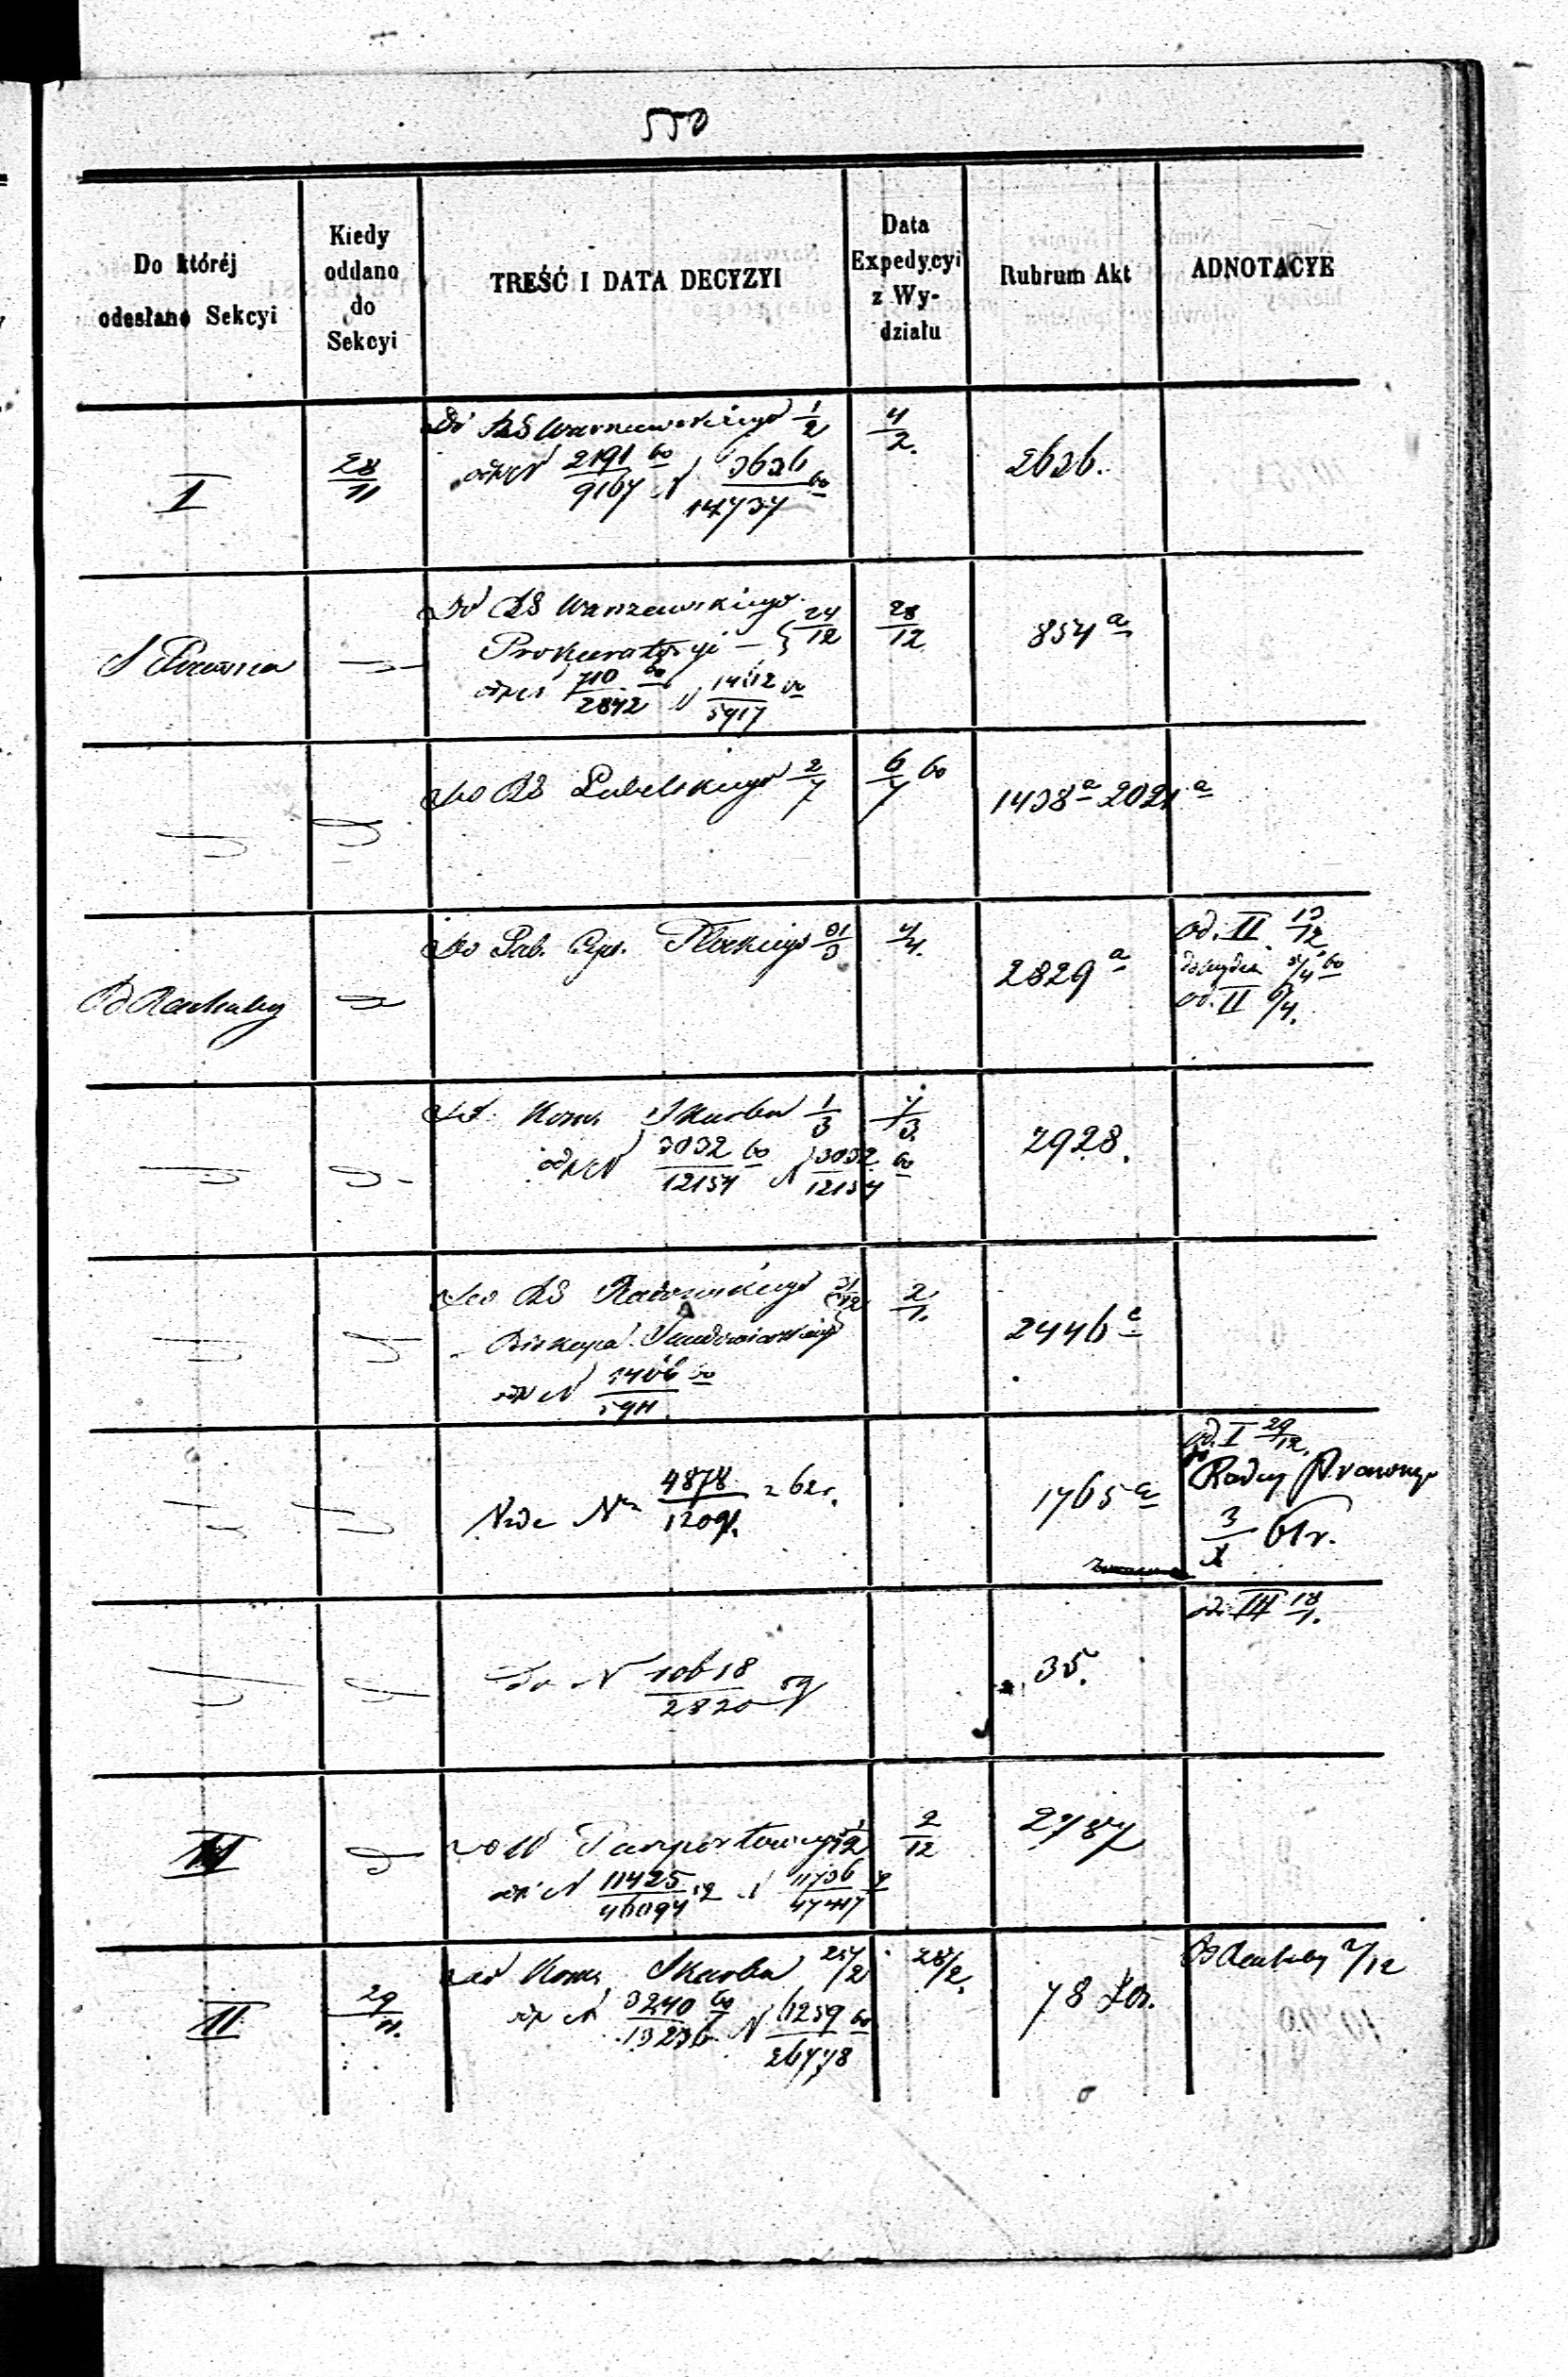 550
Do któréj odesłano Sekcyi
Kiedy oddano do Sekcyi
TREŚĆ I DATA DECYZYI
Data Expedycyi z Wydziału
Rubrum Akt
ADNOTACYE
I
28/11
Do RG Warszawskiego 1/2
odp N 2191/9167 60 N 3636/14737 60
4/2.
2626.
S Prawna
Do RG Warszawskiego
Prokuratoryi 24/12
odp N 710/2842 60 N 1412/5917 60
28/12
854 a
Do RG Lubelskiego 2/7
6/7 60
1438 a 2021 a
Od Rachuby
Do Gub. Cyw. Płockiego 31/3
4/4.
2829 a
od. II 13/12
60
od. II 6/4.
Do Kom. Skarbu 1/3
odp N 3032/12154 60 N 3032/12154 60
7/3.
2928.
Do RG Radomskiego 31/12
Biskupa Sandomierskiego
odp N 1406/5911 60
2/1.
2446 c
Vide Nr 4878/12091 z 62 r.
1765 a
od. I 29/12.
do Radcy Prawnego
3/X 61 r.
do N 10618/2820 59
35.
od. III 18/1.
III
Do W Paszportowego 1/12
odp N 11425/46094 59 N 11736/47417
2/12
2787
II
29/11.
Do Kom. Skarbu 25/2
odp N 3240/13236 60 N 6259/26778 60
28/2.
78 Lit.
Od Rachuby 2/12